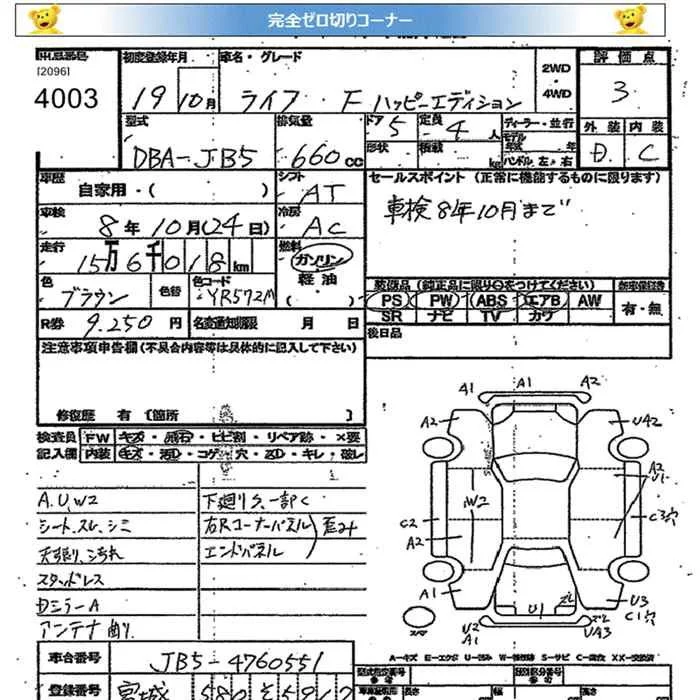 完全ゼロ切りコーナー
出品番号
[2096]
4003
初度登録年月
19 10月
車名・グレード
ライフ・F ハッピーエディション
2WD
・
4WD
評価点
3
外装 内装
D C
型式
DBA-JB5
排気量
660cc
ドア 5
定員 4人
形状
積載 kg
ディーラー・並行
モデル
年式 年
ハンドル 左・右
車歴
自家用・( )
シフト
AT
車検
8年10月(24日)
冷房
AC
走行
15万6千018km
燃料
ガソリン
軽油
( )
色
ブラウン
色替
色コード
YR572M
R券 9.250円
名変通知期限 月 日
セールスポイント (正常に機能するものに限ります)
車検8年10月まで
装備品(純正品に限り○をつけてください)
PS PW ABS エアB AW
SR ナビ TV カワ
新車保証書
有・無
後日品
注意事項申告欄(不具合内容等は具体的に記入して下さい)
修復歴 有〔箇所 〕
検査員 FW キズ・飛石・ヒビ割・リペア跡・×要
記入欄 内装 キズ・汚D・コゲ・穴・スD・キレ・破レ
A.U.W2
シート、スレ、シミ
天張り、汚れ
スタッドレス
Dミラー A
アンテナ曲り
下廻りク、一部C
右Rコーナーパネル
エンドパネル
歪み
A1 A1 A2
A2 UA2
W2
A2
U1
C2
C3穴
A2
A1
U3
C1穴
U1
U2
A1
UA3
スペア
A=キズ E=エクボ U=凹み W=補修跡 S=サビ C=腐食 XX=交換済
車台番号
JB5-4760551
登録番号
宮城 580
型式指定番号
類別区分番号